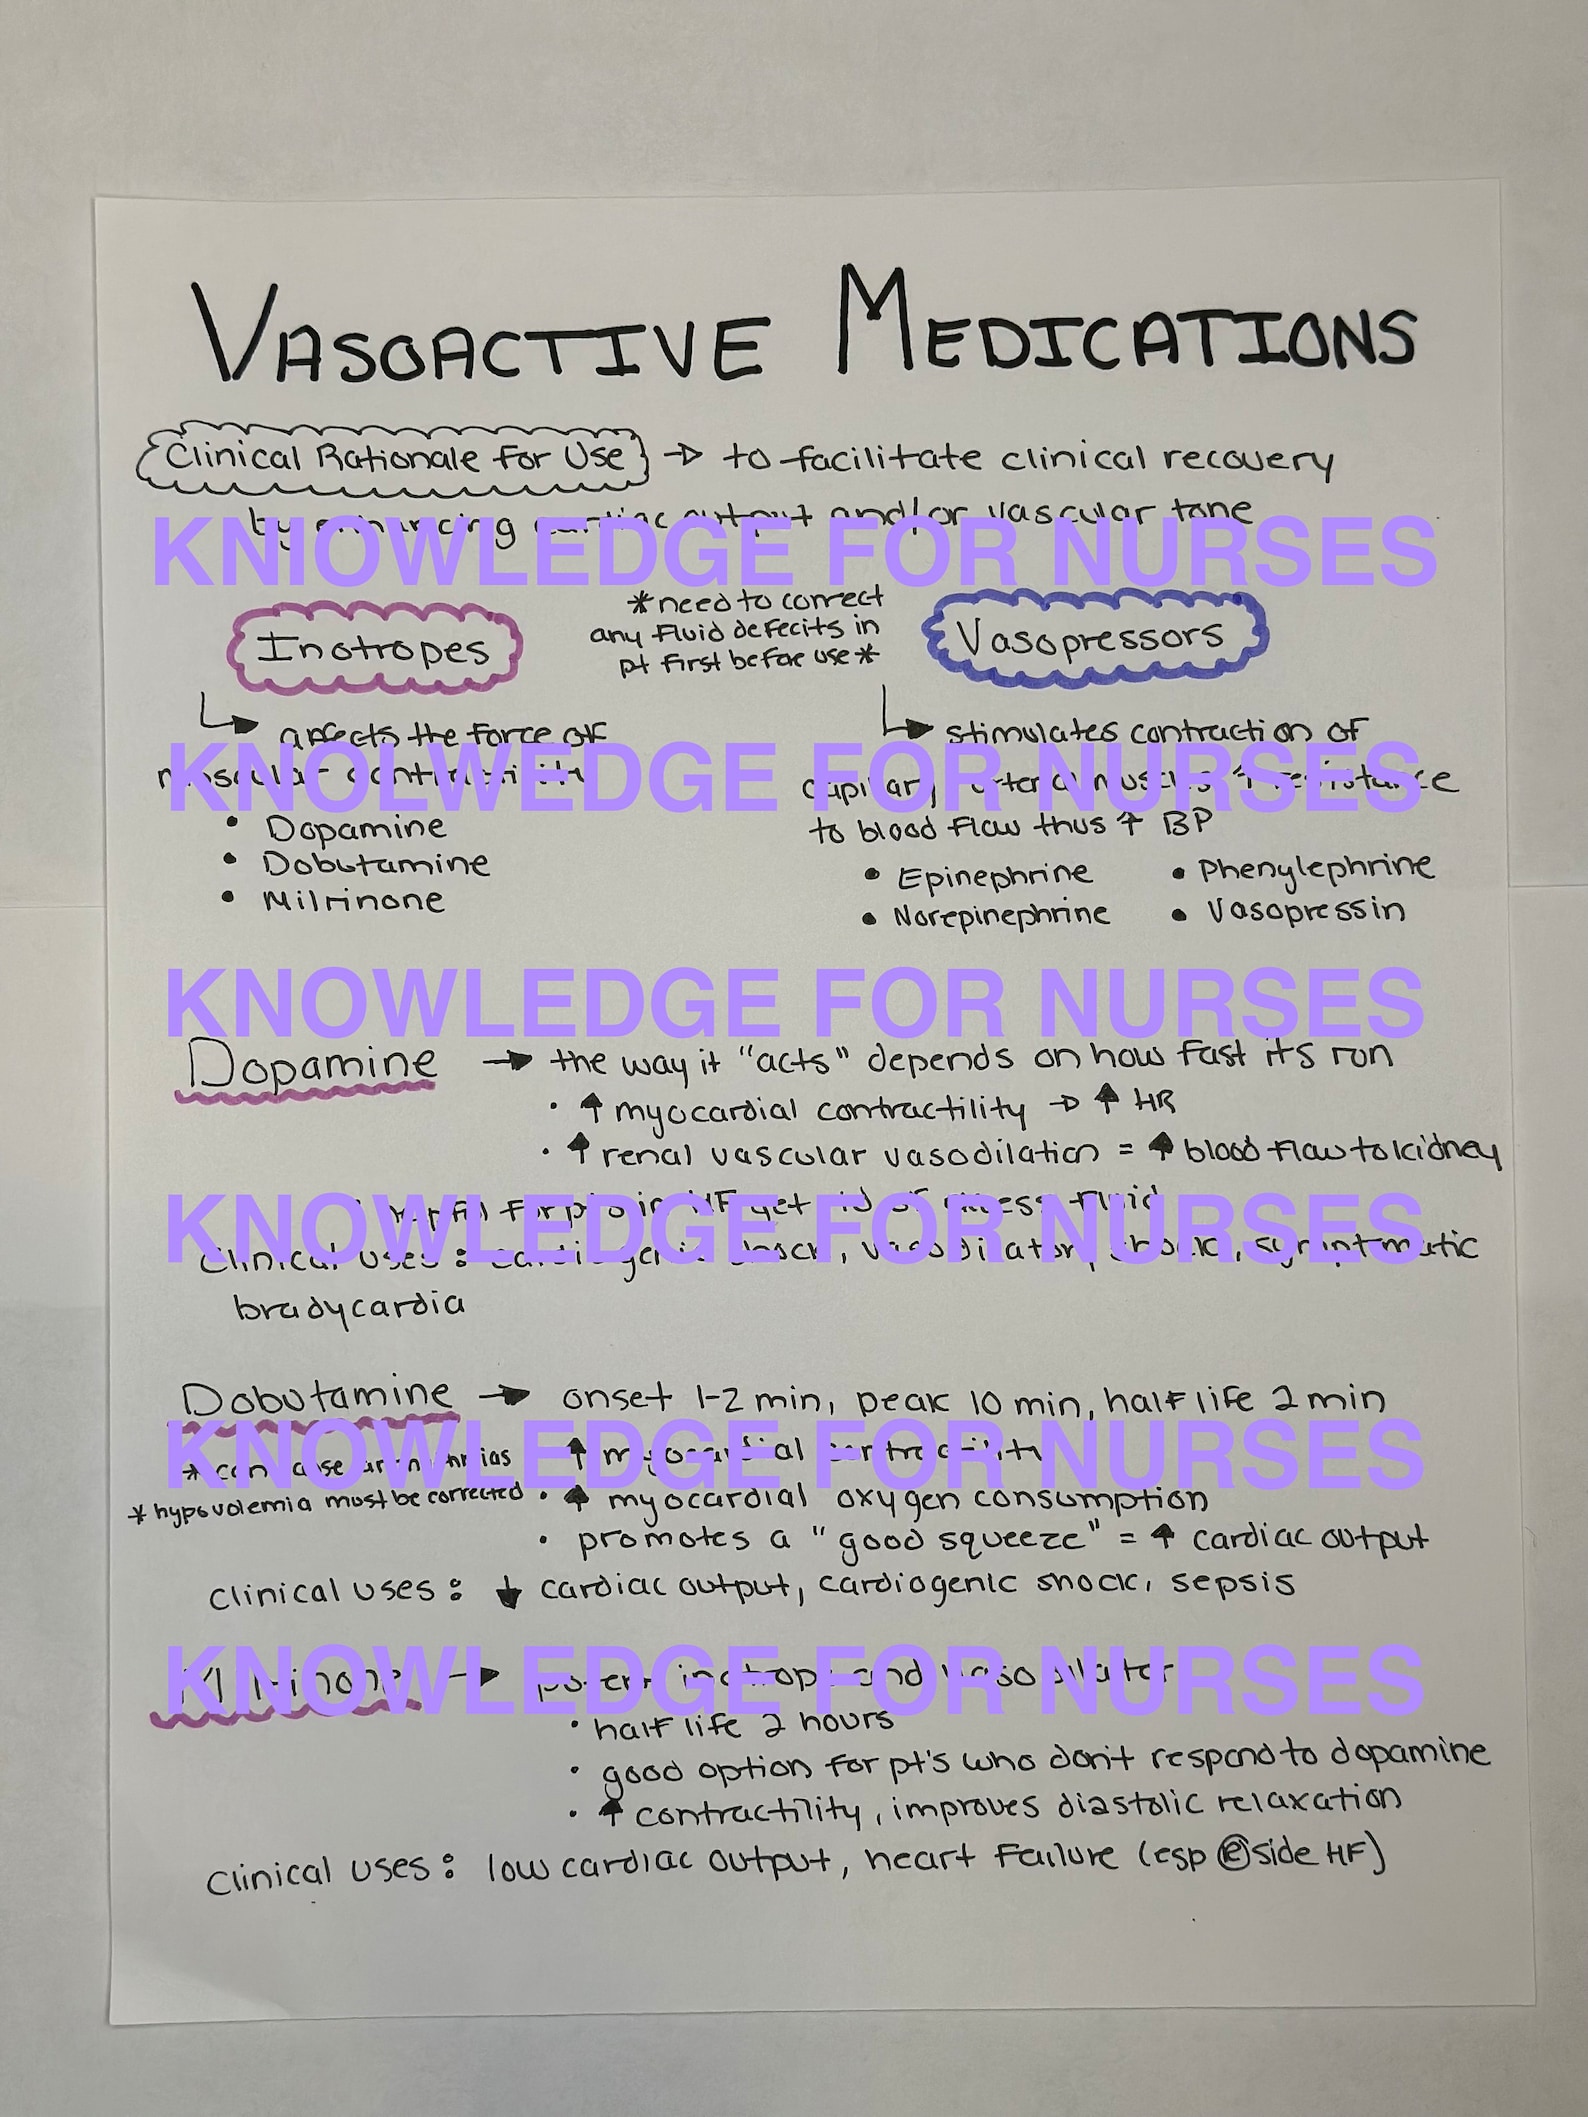 VASOACTIVE MEDICATIONS
Clinical Rationale for Use → to facilitate clinical recovery
by enhancing cardiac output and/or vascular tone
KNIOWLEDGE FOR NURSES
*need to correct
any fluid defecits in
pt first before use*
Inotropes
↳ affects the force of
muscular contractility
• Dopamine
• Dobutamine
• Milrinone
Vasopressors
↳ stimulates contraction of
capillary arterial muscles ↑ resistance
to blood flow thus ↑ BP
• Epinephrine • Phenylephrine
• Norepinephrine • Vasopressin
KNOLWEDGE FOR NURSES
KNOWLEDGE FOR NURSES
Dopamine → the way it "acts" depends on how fast its run
· ↑ myocardial contractility → ↑ HR
· ↑ renal vascular vasodilation = ↑ blood flow to kidney
helpful for pts in HF get rid of excess fluid
KNOWLEDGE FOR NURSES
Clinical uses: cardiogenic shock, vasodilatory shock, symptmatic
bradycardia
Dobutamine → onset 1-2 min, peak 10 min, half life 2 min
KNOWLEDGE FOR NURSES
* can cause arrhythmias
* hypovolemia must be corrected
↑ myocardial contractility
· ↑ myocardial oxygen consumption
· promotes a "good squeeze" = ↑ cardiac output
Clinical uses: ↓ cardiac output, cardiogenic shock, sepsis
KNOWLEDGE FOR NURSES
Milrinone → potent inotrope and vasodilator
· half life 2 hours
· good option for pt's who don't respond to dopamine
· ↑ contractility, improves diastolic relaxation
Clinical uses: low cardiac output, heart failure (esp Ⓡ side HF)